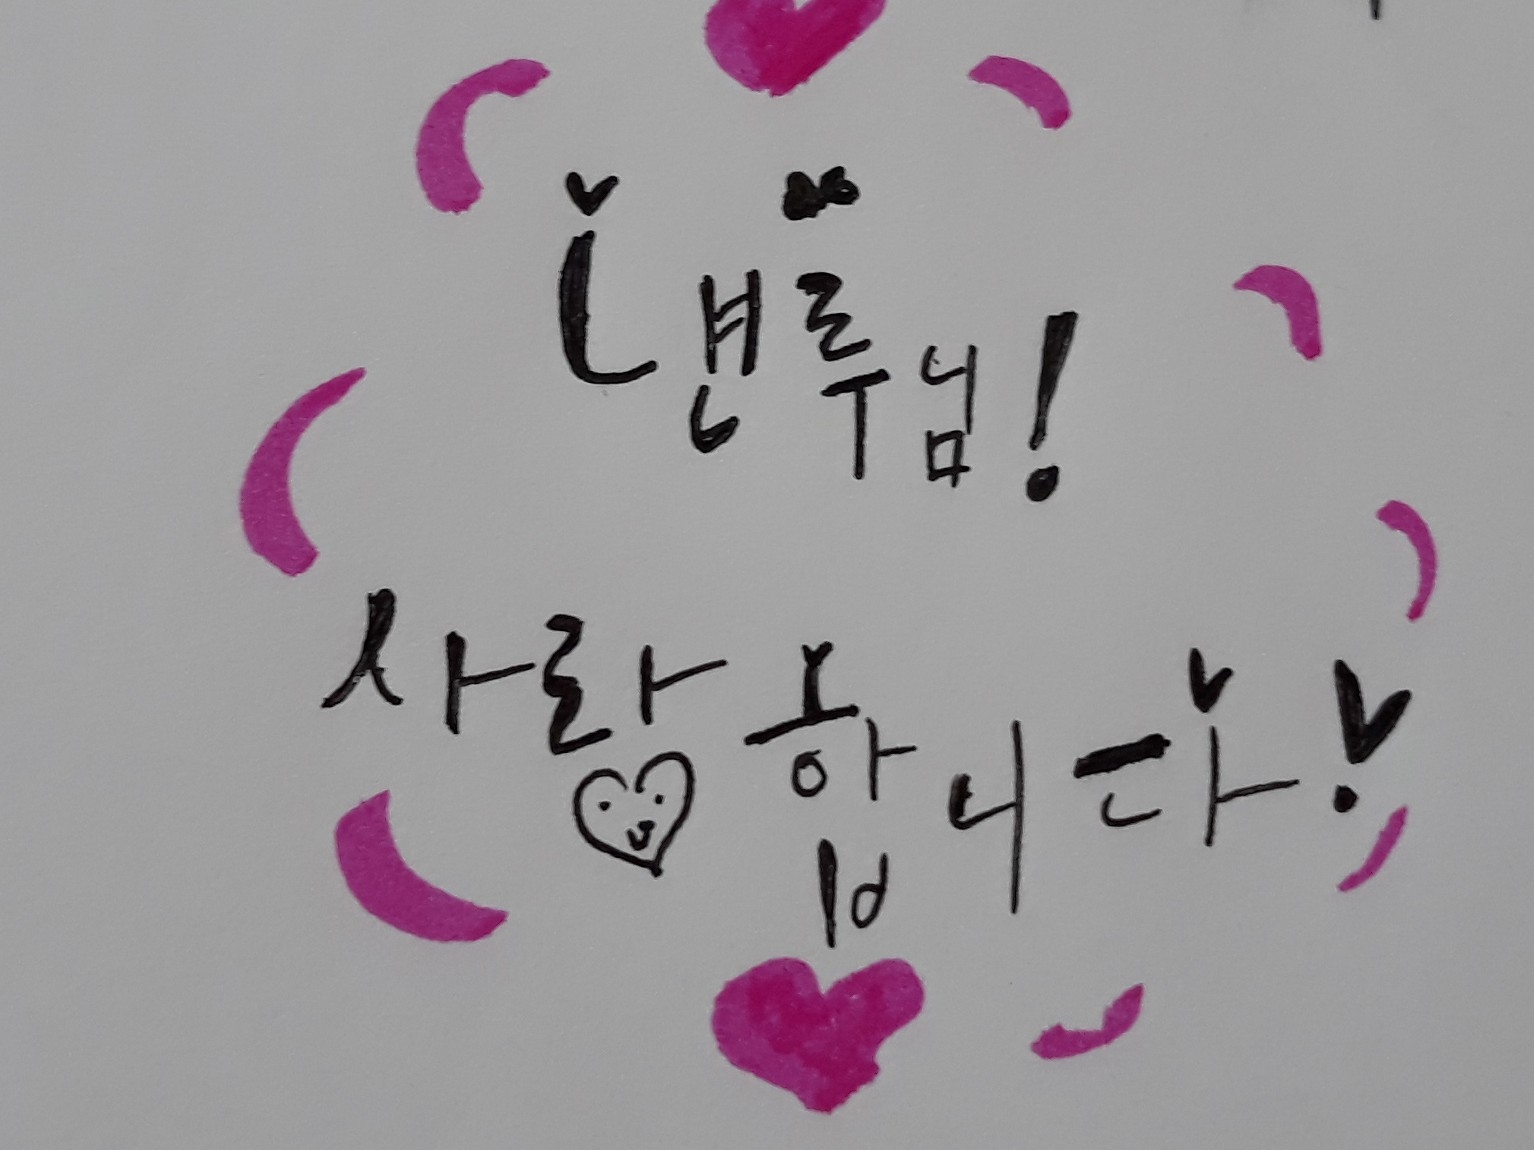 냰루님!
사랑합니다!